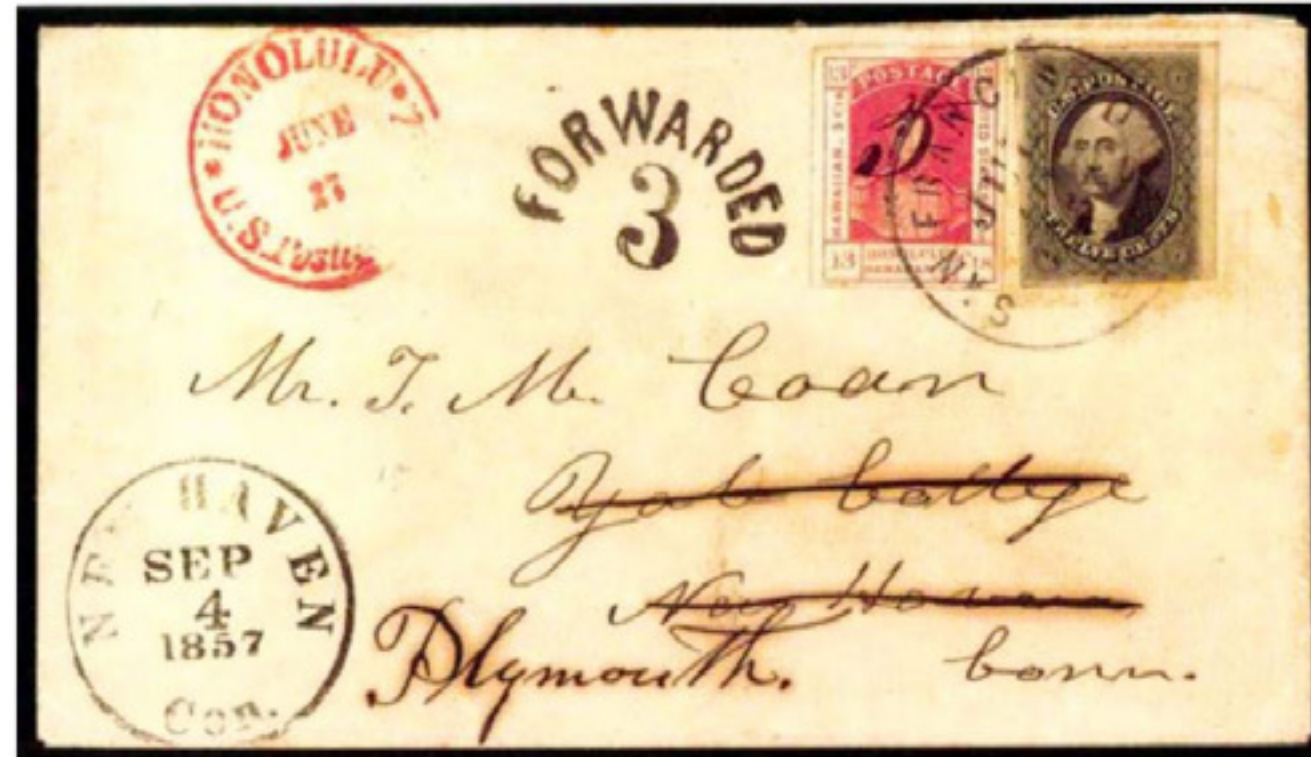 HONOLULU
JUNE
27
U.S. Postage
FORWARDED
3
POSTAGE
5
13
SAN FRANCISCO
U.S. POSTAGE
TWELVE CENTS
Mr. T. M. Coan
Yale College
New Haven
Plymouth. Conn.
NEW HAVEN
SEP
4
1857
Con.